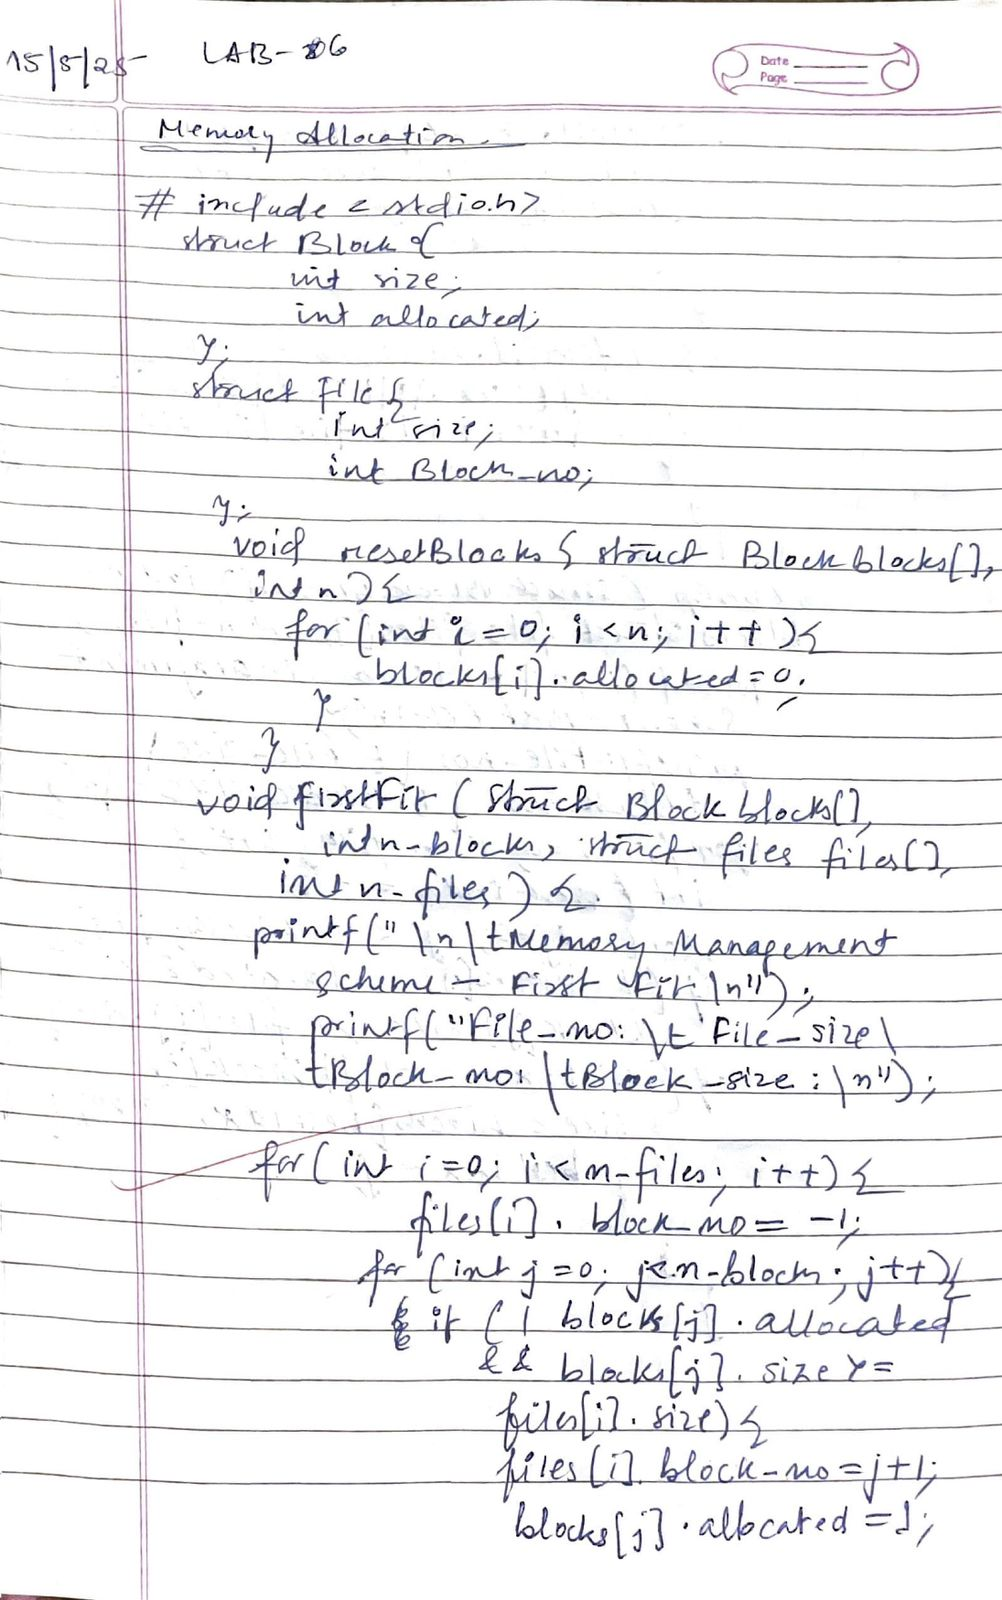 15/5/25 LAB-06
Date
Page
Memory Allocation
# include <stdio.h>
struct Block {
int size;
int allocated;
};
struct File {
int size;
int Block_no;
};
void resetBlocks { struct Block blocks[],
int n) {
for (int i = 0; i < n; i++) {
blocks[i]..allocated = 0;
}
}
void firstFit (struct Block blocks[],
int n-blocks, struct files files[],
int n-files) {
printf(" \n\tMemory Management
scheme - First Fit \n");
printf("File_no: \t File_size\
tBlock_no: \tBlock_size: \n");
for (int i=0; i< n-files; i++) {
files[i]. block_no = -1;
for (int j=0; j< n-block; j++) {
if (! blocks[j].allocated
&& blocks[j]. size >=
files[i]. size) {
files[i]. block_no = j+1;
blocks[j].allocated = 1;